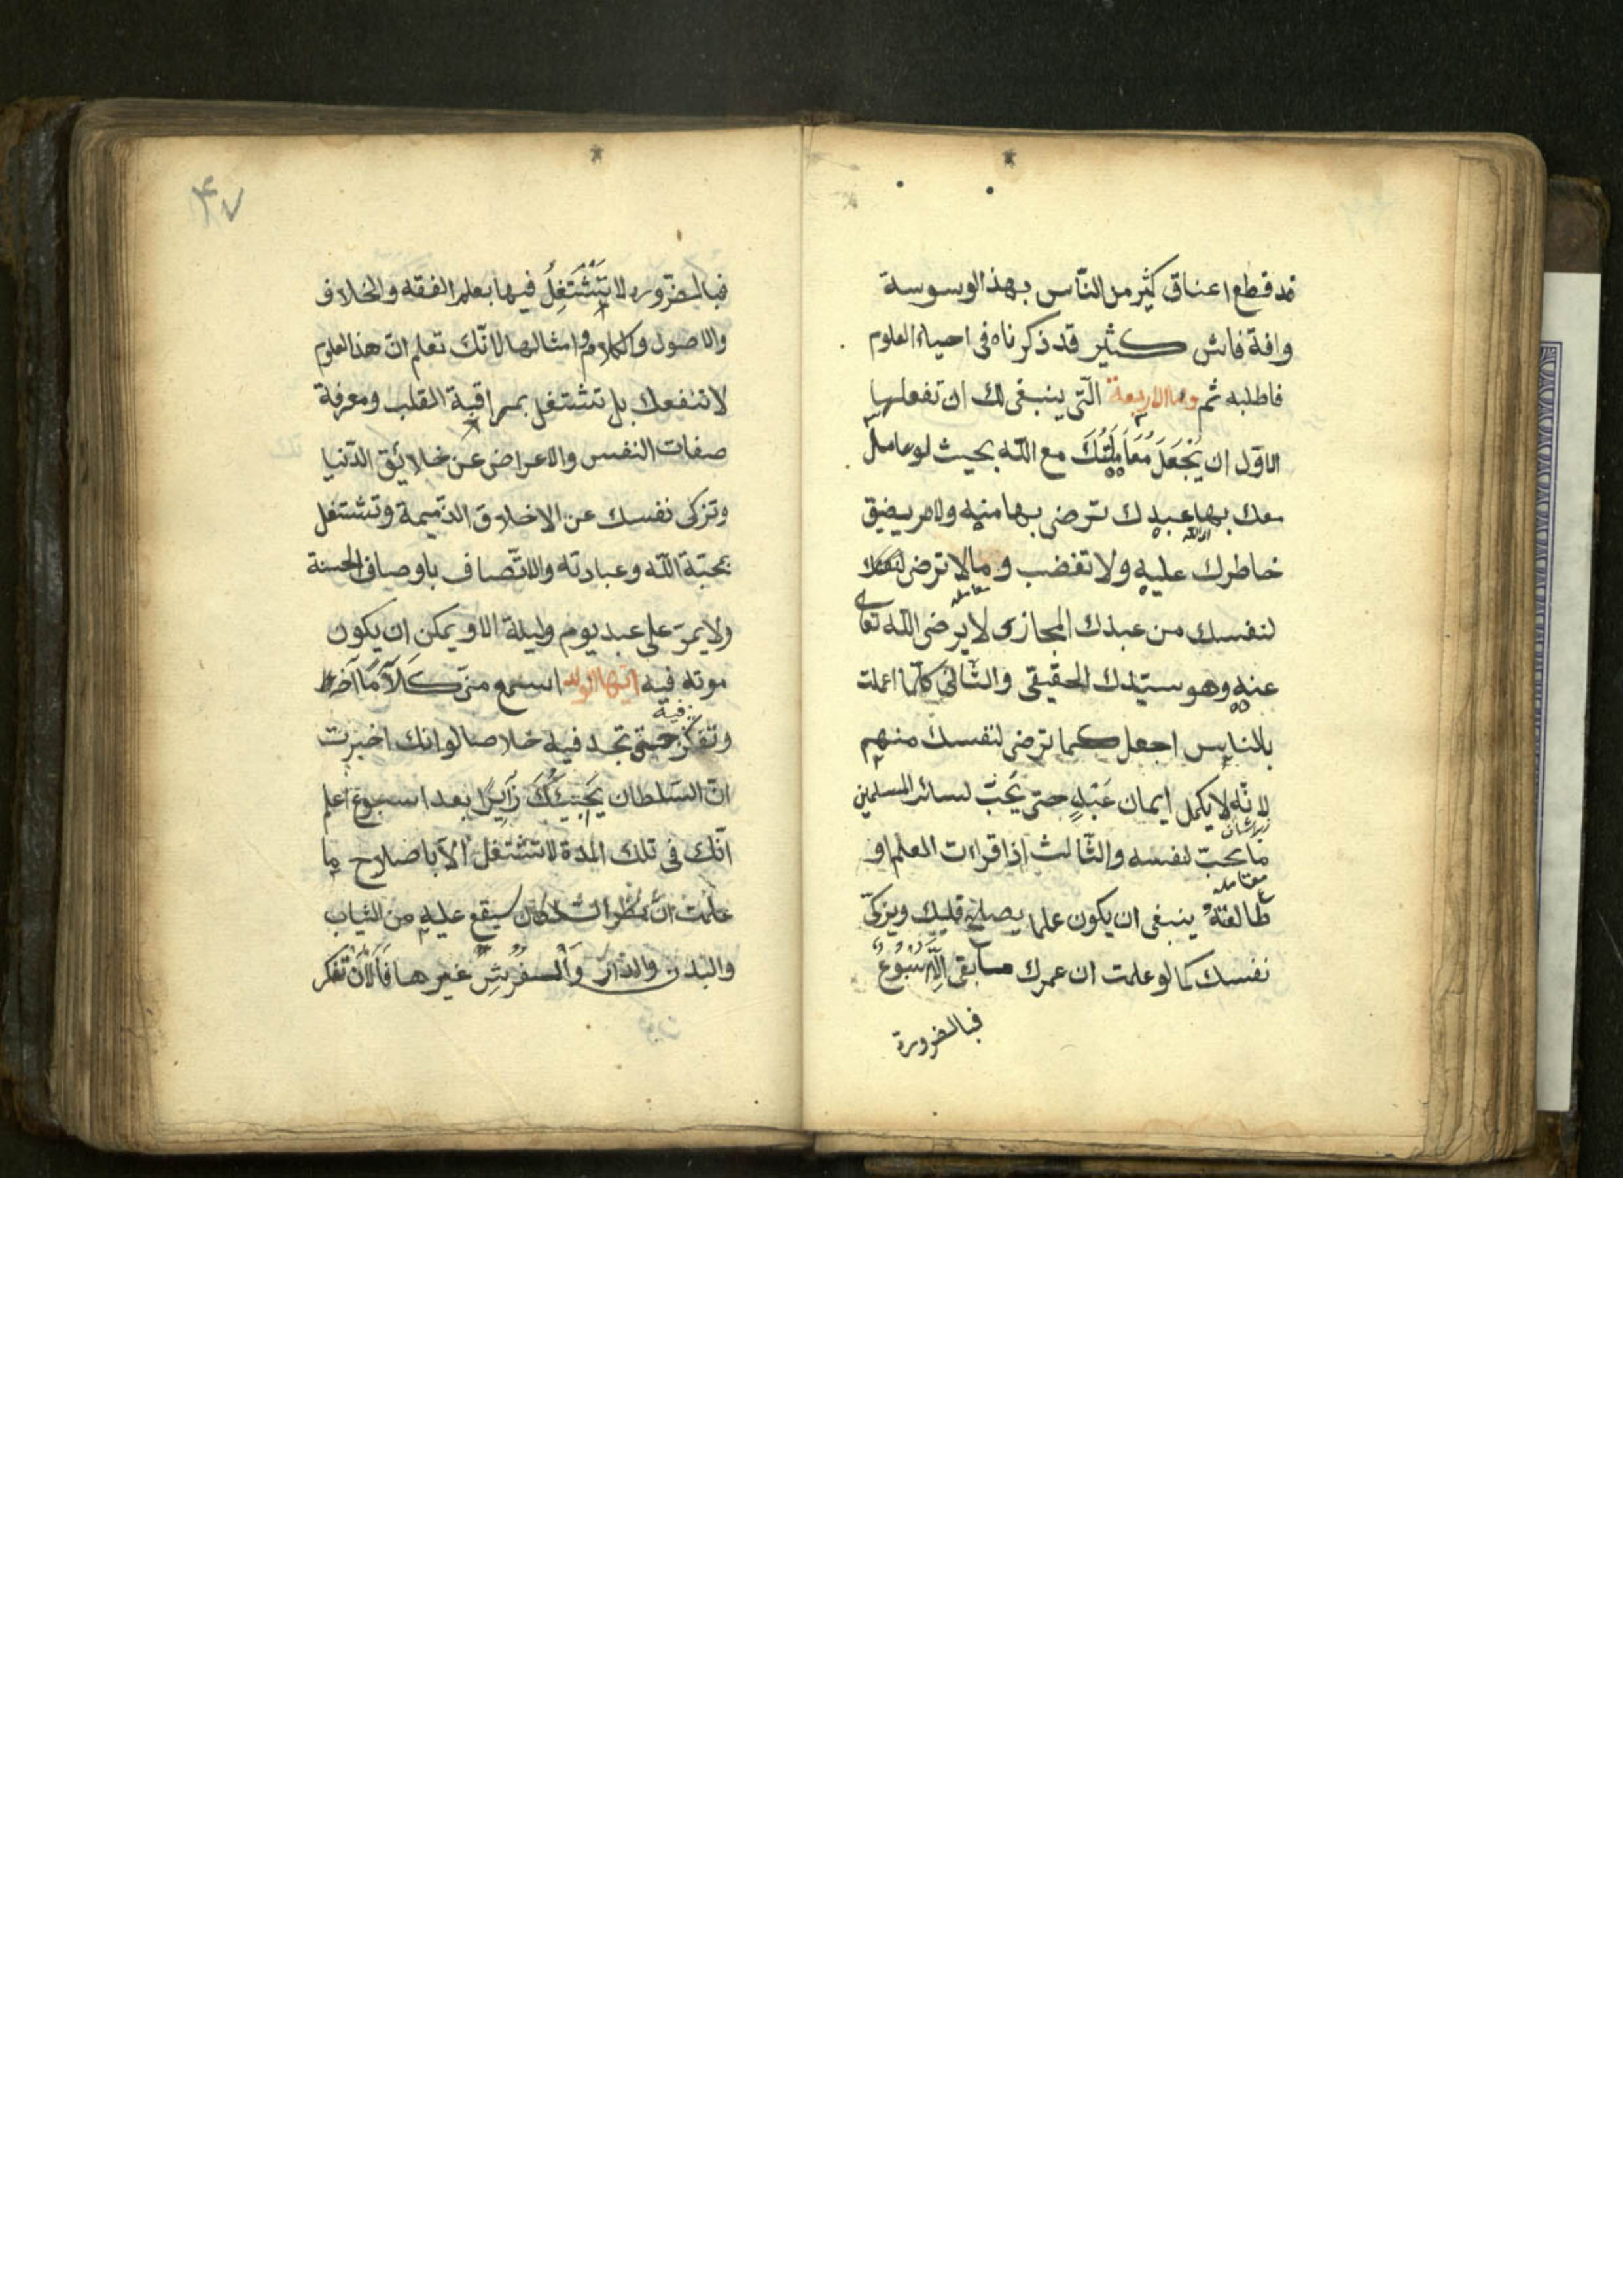 قد قطع اعناق كثير من الناس بهذ الوسوسة
وافة فاش كثير قد ذكرناه فى احياء العلوم
فاطلبه ثم واما الاربعة التى ينبغى لك ان تفعلها
الاول ان تَجْعَلَ مُعَامَلَتَكَ مع الله بحيث لو عامل
معك بها عبدك ترضى بها منه ولا يضيق
خاطرك عليه ولا تغضب و ما لا ترضى
معامله
لنفسك من عبدك المجازى لا يرضى الله تعالى
عنه وهو سيّدك الحقيقى والثانى كلّما اعملت
بالناس اجعل كما ترضى لنفسك منهم
لانّه لا يكمل ايمان عَبْدٍ حتى يَحَبّ لسائر المسلمين
ما يحبّ لنفسه والثّالث اذا قراءت العلم او
طالعته ينبغى ان يكون علما يصلح قلبك ويزكّى
نفسك كما لو علمت ان عمرك ما يبقى الّا اسبوع
فبالضرورة
۴۷
فبالضّروره لا تَشْتَغِلُ فيها بعلم الفقه والخلاف
والاصول والكلام و امثالها لانّك تعلم انّ هذ العلوم
لا تنفعك بل تشتغل بمراقبة القلب ومعرفة
صفات النفس والاعراض عن خلايق الدّنيا
وتزكى نفسك عن الاخلاق الذّميمة وتشتغل
بمحبّة الله وعبادته والاتّصاف باوصاف الحسنة
ولا يمرّ على عبد يوم وليلة الا و يمكن ان يكون
موته فيه ايّها الولد اسمع منّى كَلَامًا آخر
فيه
وتفكّر حتى تجد فيه خلاصا لو انك اخبرت
انّ السّلطان يَجِيئُكَ زَايِرًا بعد اسبوع اعلم
انّك فى تلك المدّة لا تشتغل الّا باصلاح ما
علمت انّ نظر السّلطان سيقع عليه من الثياب
والبدن والدّار وَالفُرْشِ غيرها فَالآنَ تفكر